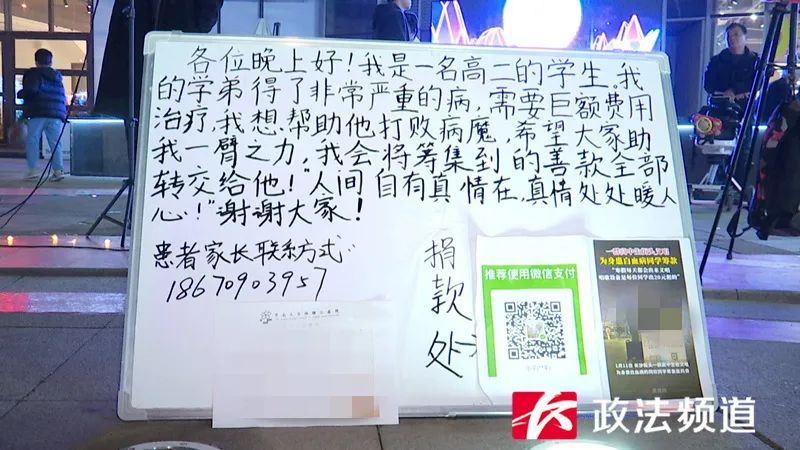 各位晚上好！我是一名高二的学生。我
的学弟得了非常严重的病，需要巨额费用
治疗，我想帮助他打败病魔，希望大家助
我一臂之力，我会将筹集到的善款全部
转交给他！“人间自有真情在，真情处处暖人
心！”谢谢大家！
患者家长联系方式：
18670903957
捐款处
推荐使用微信支付
为身患白血病同学筹款
政法频道